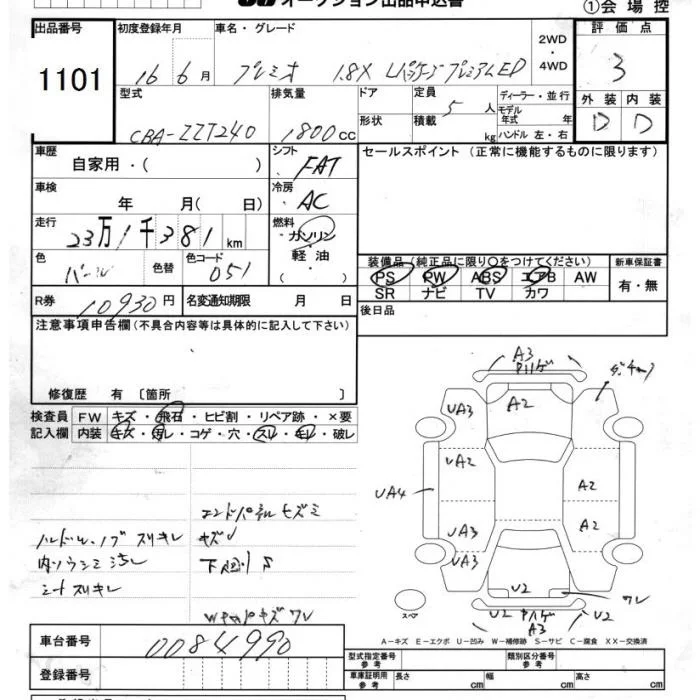 オークション出品申込書 ①会場控
出品番号 初度登録年月 車名・グレード 2WD・4WD 評価点
1101 16 6月 プレミオ 1.8X Lパッケージ プレミアムED 3
型式 排気量 ドア 定員 5人 ディーラー・並行 外装 内装
CBA-ZZT240 1800cc 形状 積載 kg モデル年式 年 D D
ハンドル 左・右
車歴 自家用・( ) シフト FAT セールスポイント (正常に機能するものに限ります)
車検 年 月( 日) 冷房 AC
走行 23万1千381km 燃料 ガソリン
軽油
( )
色 パール 色替 色コード 051 装備品 (純正品に限り○をつけてください) 新車保証書
PS PW ABS エアB AW 有・無
SR ナビ TV カワ
R券 10930円 名変通知期限 月 日 後日品
注意事項申告欄(不具合内容等は具体的に記入して下さい)
修復歴 有〔箇所 〕
検査員 FW キズ・飛石・ヒビ割・リペア跡・×要
記入欄 内装 キズ・汚レ・コゲ・穴・スレ・キレ・破レ
A3
UA3 A2
UA2 UA4 A2
UA3 A2
UA3
U2 ワレ
U2 U2
A3
スペア
ハンドル.ノブ スリキレ
内ソウシミ汚レ
シートスリキレ
エンドパネルヒズミ
キズ
下回りS
キズワレ
A-キズ E-エクボ U-凹み W-補修跡 S-サビ C-腐食 XX-交換済
車台番号 0084990
登録番号
型式指定番号 参考 類別区分番号 参考
車庫証明用 参考 長さ cm 幅 cm 高さ cm